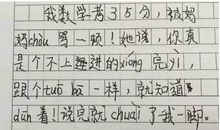 我数学考35分,被妈
妈chōu骂一顿!她说,你真
是个不上进的xióng完儿,
跟个tuó bà一样,就知道
dūn着!说完就chuāi了我一脚。